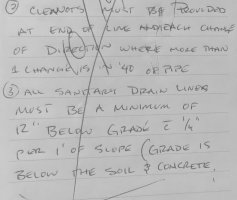 ② CLEANOUTS MUST BE PROVIDED
AT END OF LINE AND EACH CHANGE
OF DIRECTION WHERE MORE THAN
1 CHANGE IS IN '40 OF PIPE
③ ALL SANITARY DRAIN LINES
MUST BE A MINIMUM OF
12" BELOW GRADE C̄ ¼"
PER 1' OF SLOPE (GRADE IS
BELOW THE SOIL & CONCRETE.